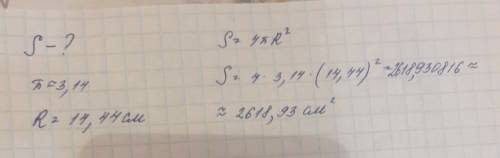 S - ?
π = 3,14
R = 14,44 см
S = 4πR²
S = 4 · 3,14 · (14,44)² = 2618,930816 ≈
≈ 2618,93 см²